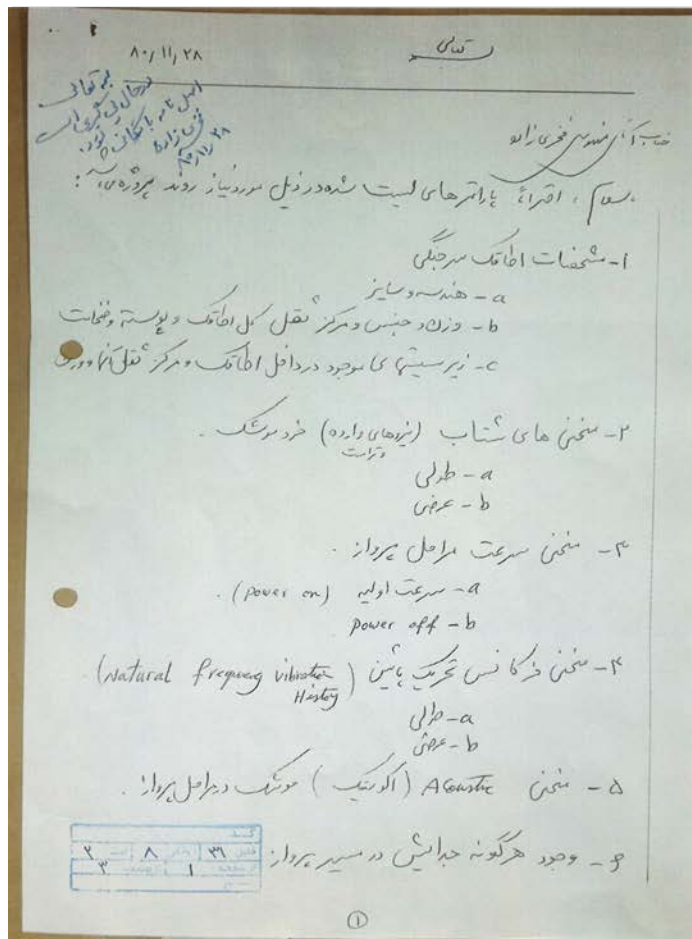 بسمه تعالی
۸۰/۱۱/۲۸
بسمه تعالی
اصل نامه بایگانی شود.
فخری زاده
۸۰/۱۱/۲۸
جناب آقای مهندس فخری زاده
سلام، احتراماً پارامترهای لیست شده در ذیل مورد نیاز روند پروژه می
۱- مشخصات اطاقک سرجنگی
a - هندسه و سایز
b - وزن و جنس و مرکز ثقل کل اطاقک و پوسته و ضخامت
c - زیر سیستمهای موجود در داخل اطاقک و مرکز ثقل آنها و وزن
۲- منحنی های شتاب (نیروهای وارده) خود موشک.
a - طولی
b - عرضی
۳- منحنی سرعت مراحل پرواز.
a - سرعت اولیه (power on).
b - power off
۴- منحنی فرکانس تحریک پائین (Natural frequency vibration History)
a - طولی
b - عرضی
۵- منحنی Acoustic (اکوستیک) موشک در مراحل پرواز.
۶- وجود هرگونه جدایش در مسیر پرواز
۳۹ ۸ ۲
۱ ۳
۱